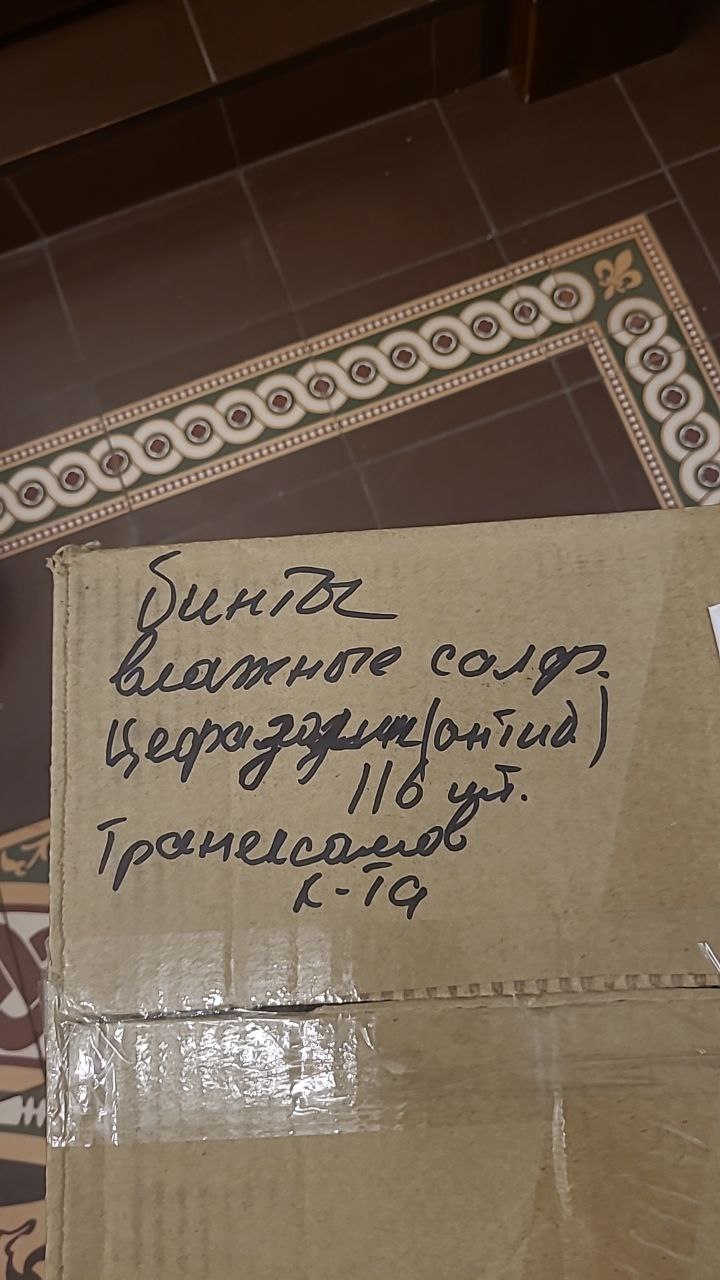 бинты
влажные салф.
Цефазолин (антиб)
116 шт.
Транексамов
к-та